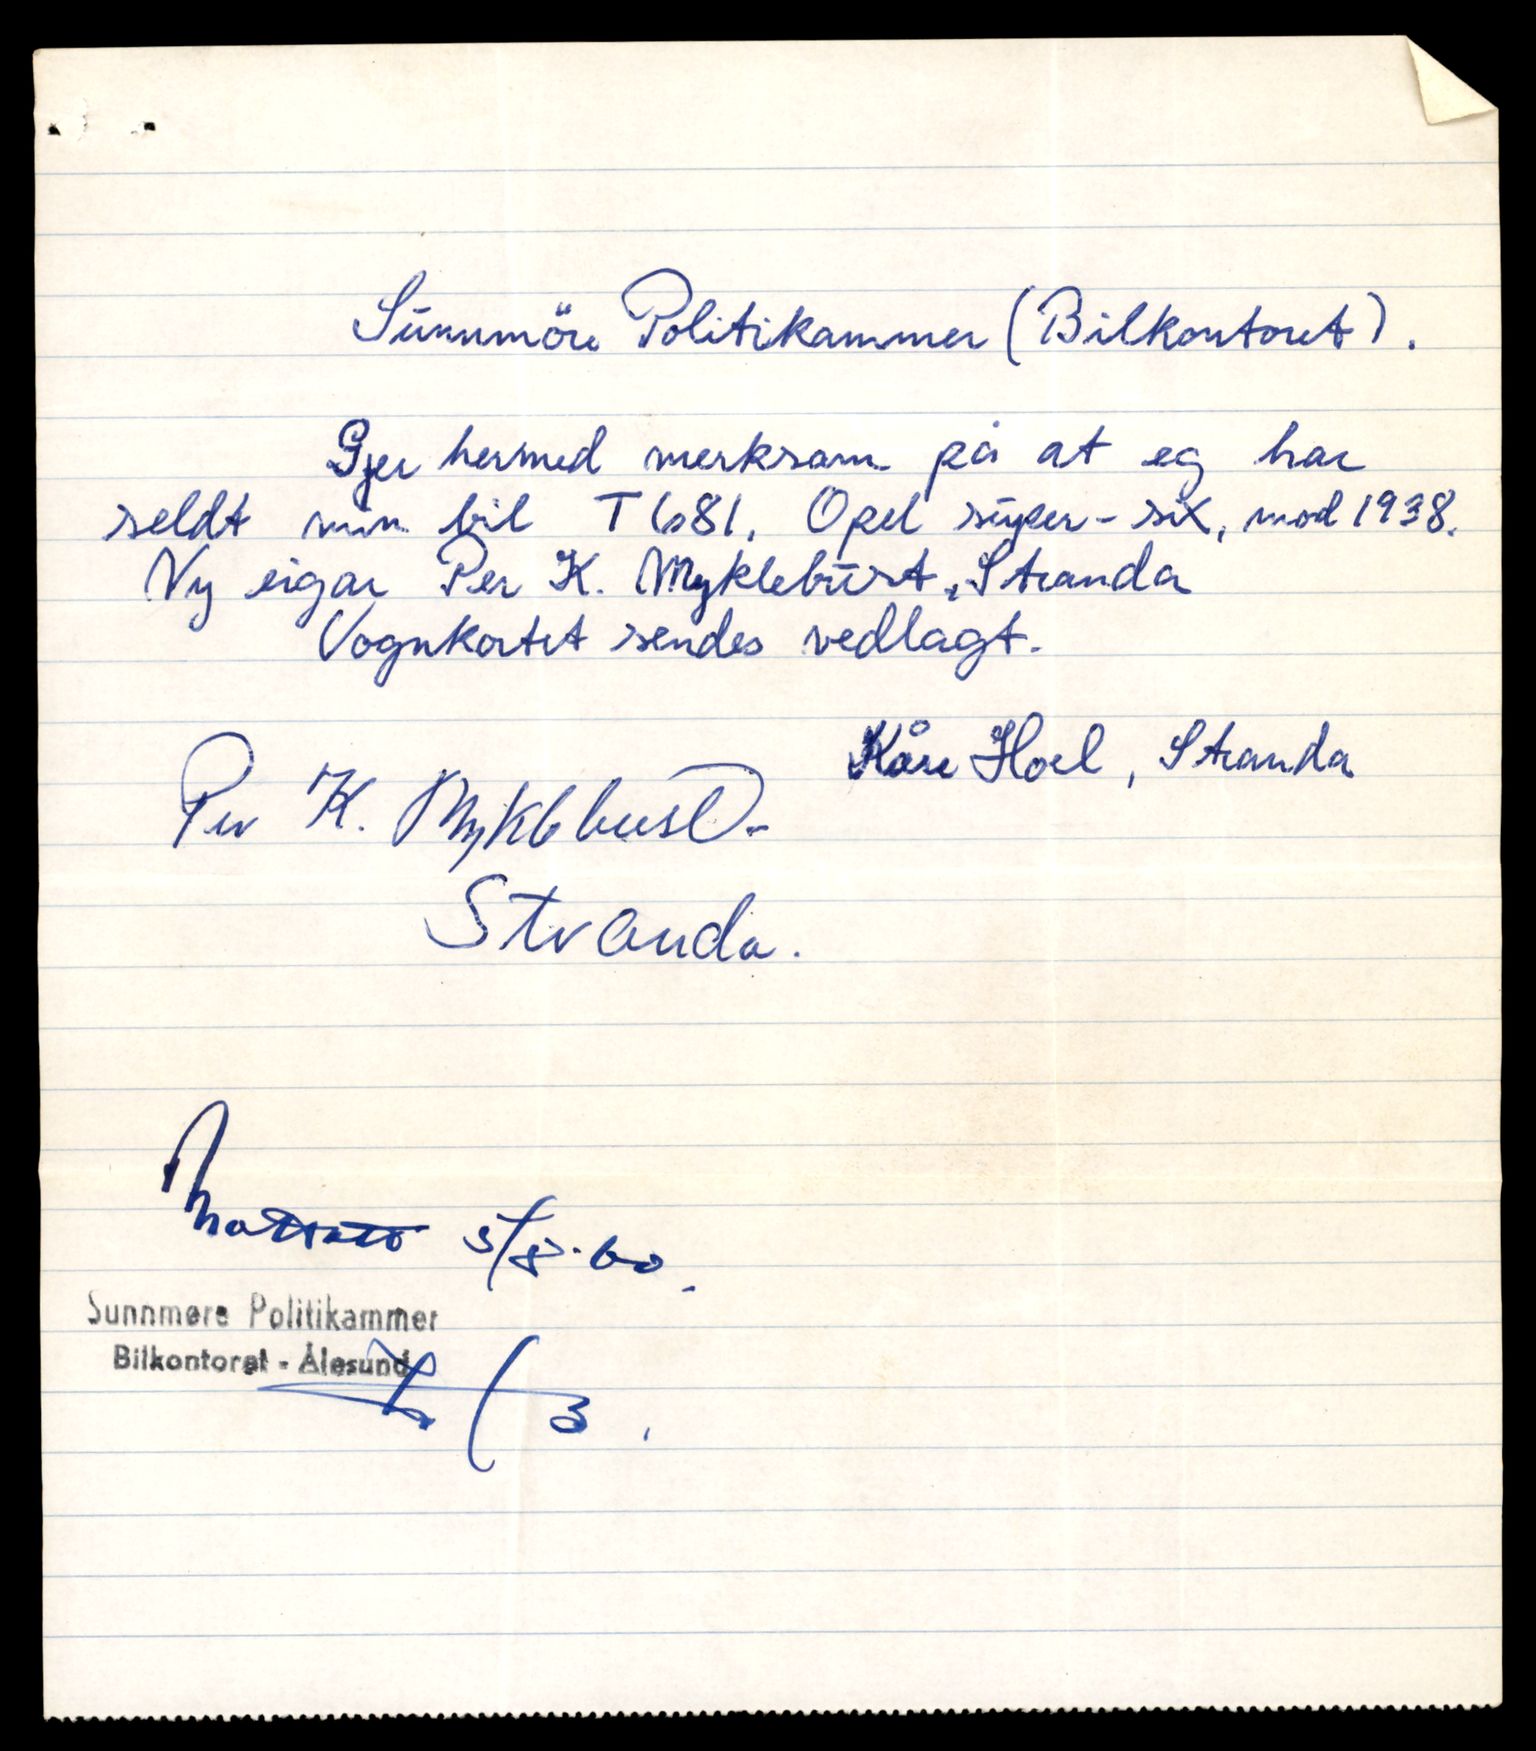 Sunnmöre Politikammer (Bilkontoret).
Gjer hermed merksam på at eg har
seldt min bil T 681, Opel super-six, mod 1938.
Ny eigar Per K. Myklebust, Stranda
Vognkortet sendes vedlagt.
Kåre Hoel, Stranda
Per K. Myklebust.
Stranda.
Mottatt 5/8-60.
Sunnmøre Politikammer
Bilkontoret - Ålesund